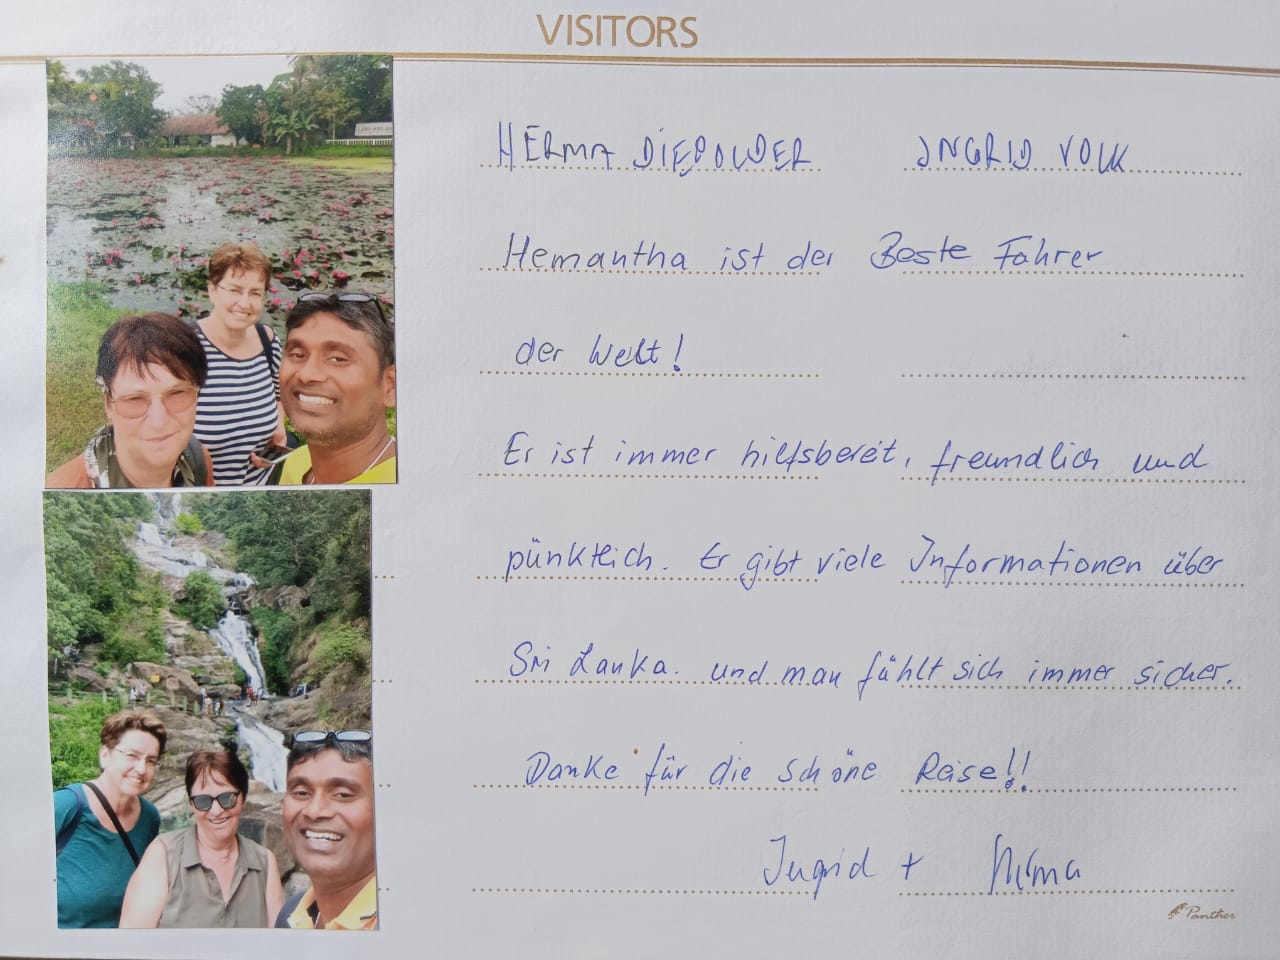 VISITORS
HERMA DIEPOLDER INGRID VOLK
Hemantha ist der Beste Fahrer
der Welt!
Er ist immer hilfsbereit, freundlich und
pünktlich. Er gibt viele Informationen über
Sri Lanka. und man fühlt sich immer sicher.
Danke für die schöne Reise!!
Ingrid + Herma
Panther